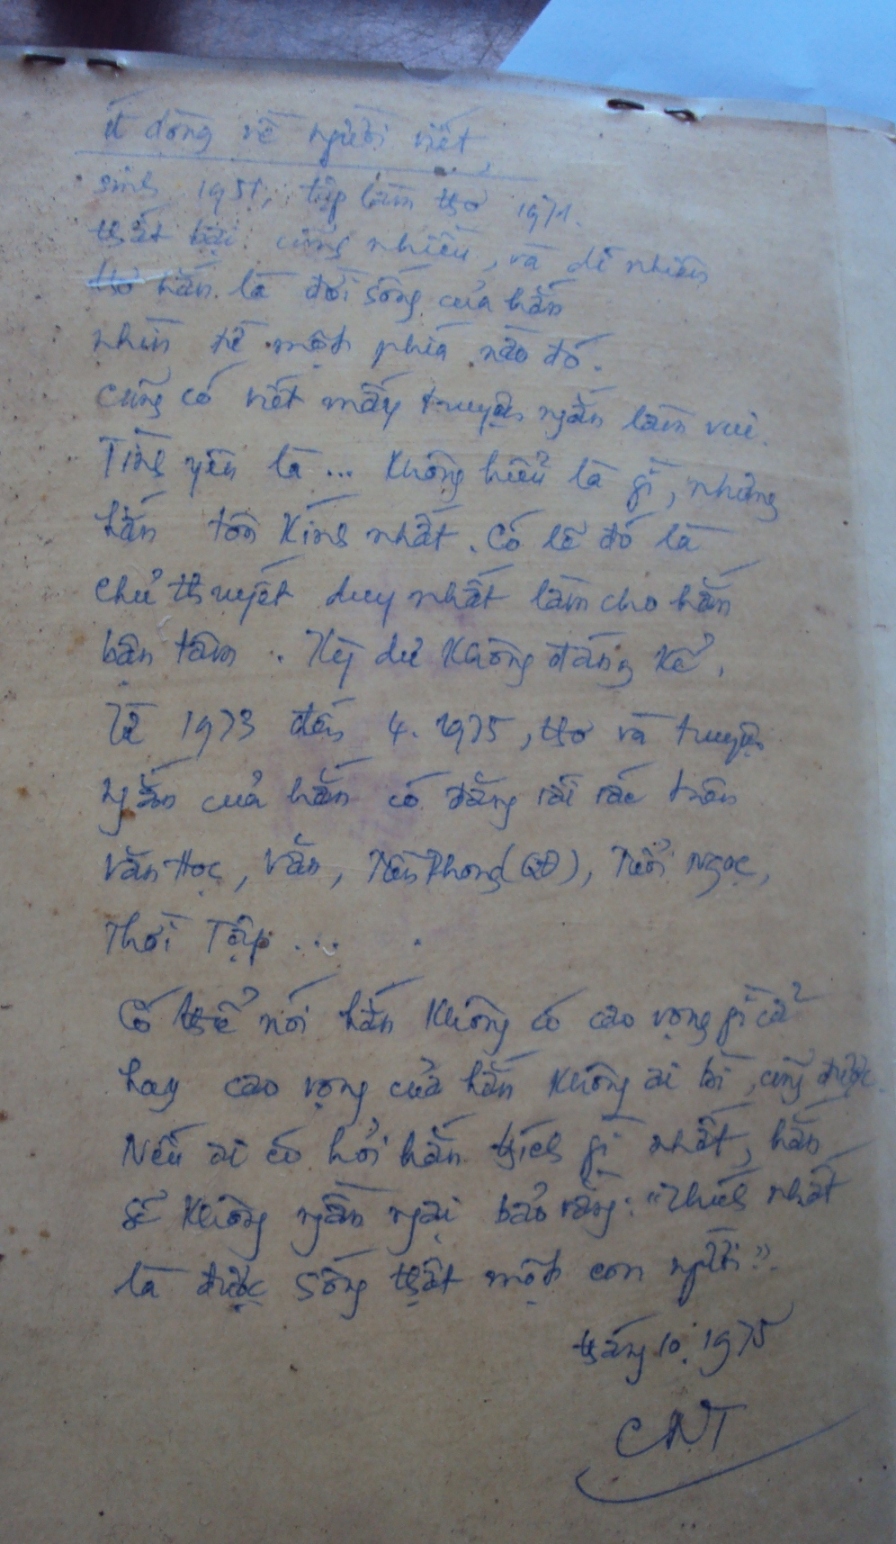 ít dòng về người viết
sinh 1951, tập làm thơ 1971.
thất bại cũng nhiều, và dĩ nhiên
thơ hắn là đời sống của hắn
nhìn từ một phía nào đó.
cũng có viết mấy truyện ngắn làm vui.
Tình yêu là... không hiểu là gì, nhưng
hắn tôn kính nhất. Có lẽ đó là
chủ thuyết duy nhất làm cho hắn
bận tâm. Kỳ dư không đáng kể.
Từ 1973 đến 4.1975, thơ và truyện
ngắn của hắn có đăng rải rác trên
Văn Học, Văn, Tiền Phong (QĐ), Tuổi Ngọc,
Thời Tập...
Có thể nói hắn không có cao vọng gì cả
hay cao vọng của hắn không ai , cũng được.
Nếu ai có hỏi hắn thích gì nhất, hắn
sẽ không ngần ngại bảo rằng: "Thích nhất
là được sống thật một con người".
tháng 10. 1975
CNT